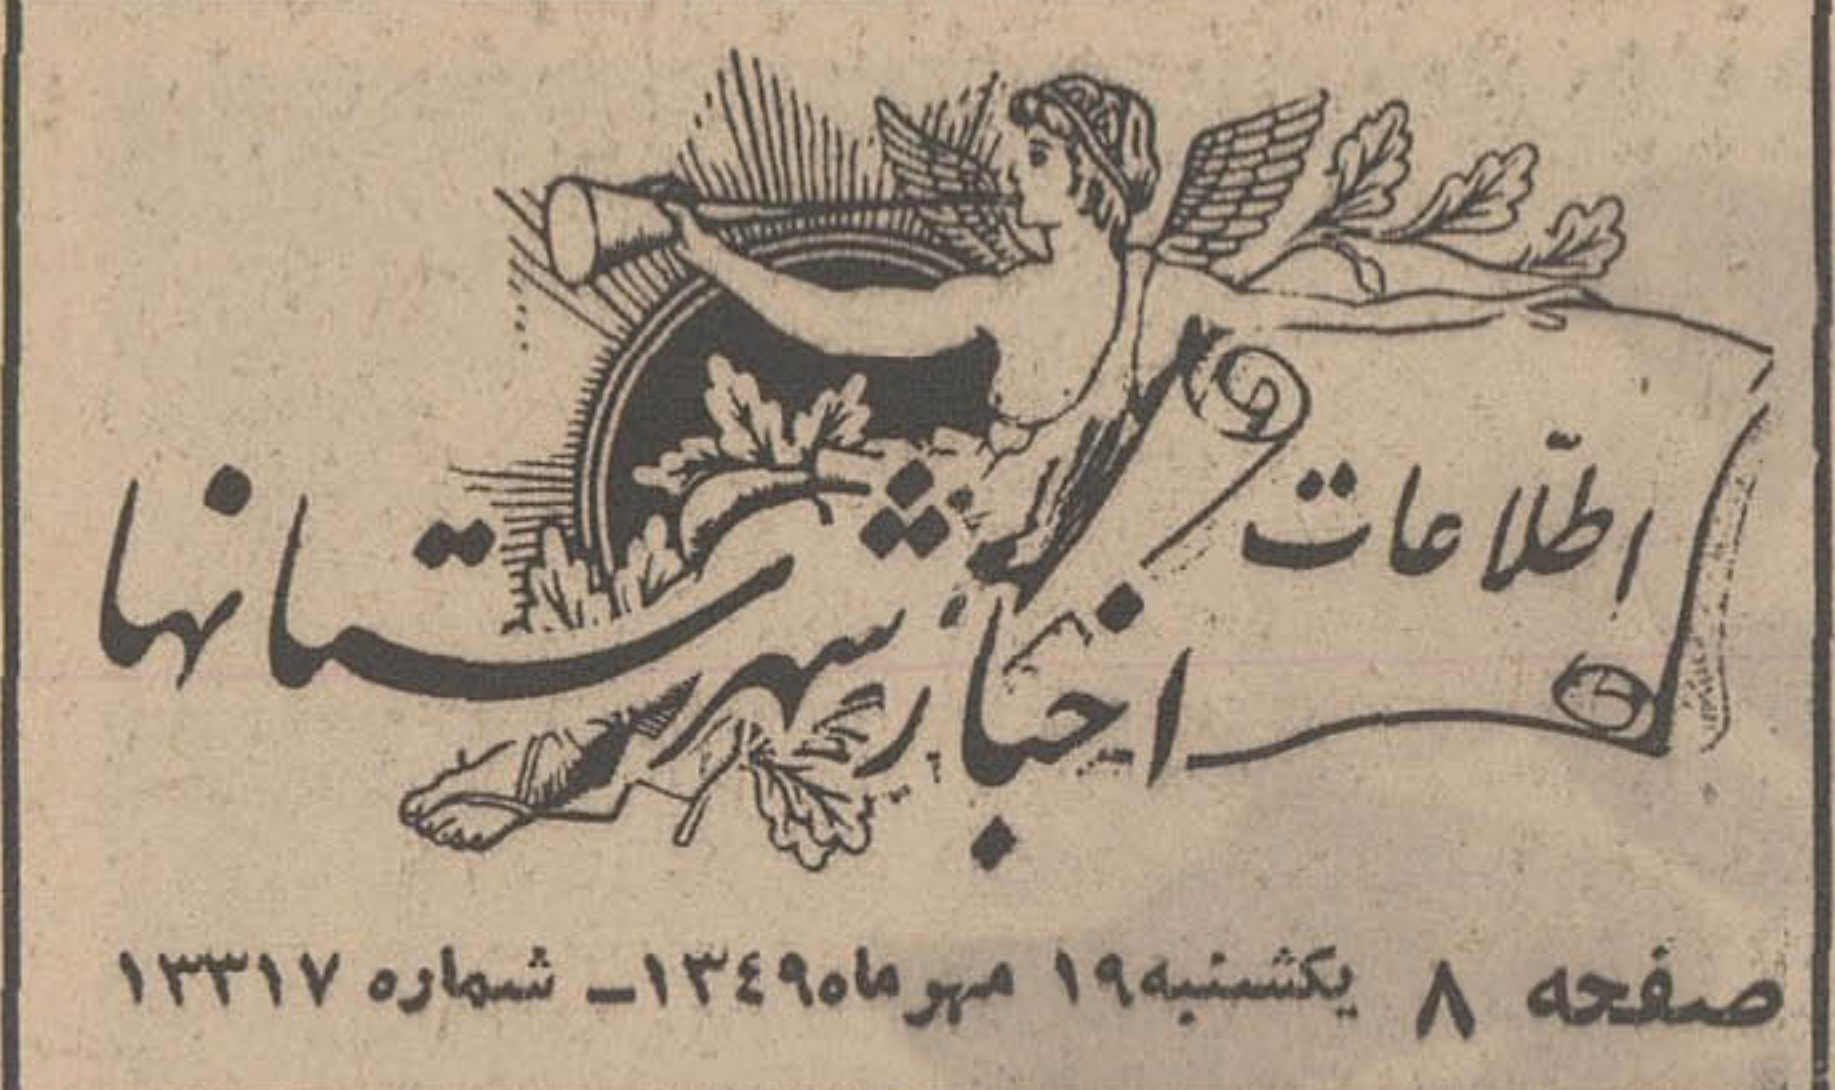 اطلّاعات
اخبار شهرستانها
صفحه ۸ یکشنبه ۱۹ مهر ماه ۱۳٤۹ـ شماره ۱۳۳۱۷